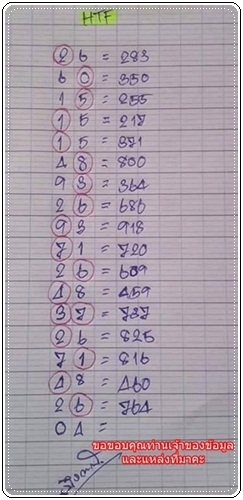 HTF
26 = 283
60 = 350
15 = 255
15 = 217
15 = 371
48 = 800
93 = 364
26 = 686
93 = 918
71 = 720
26 = 609
48 = 459
37 = 727
26 = 825
71 = 816
48 = 460
26 = 764
04 =
ขอขอบคุณท่านเจ้าของข้อมูล
และแหล่งที่มาคะ